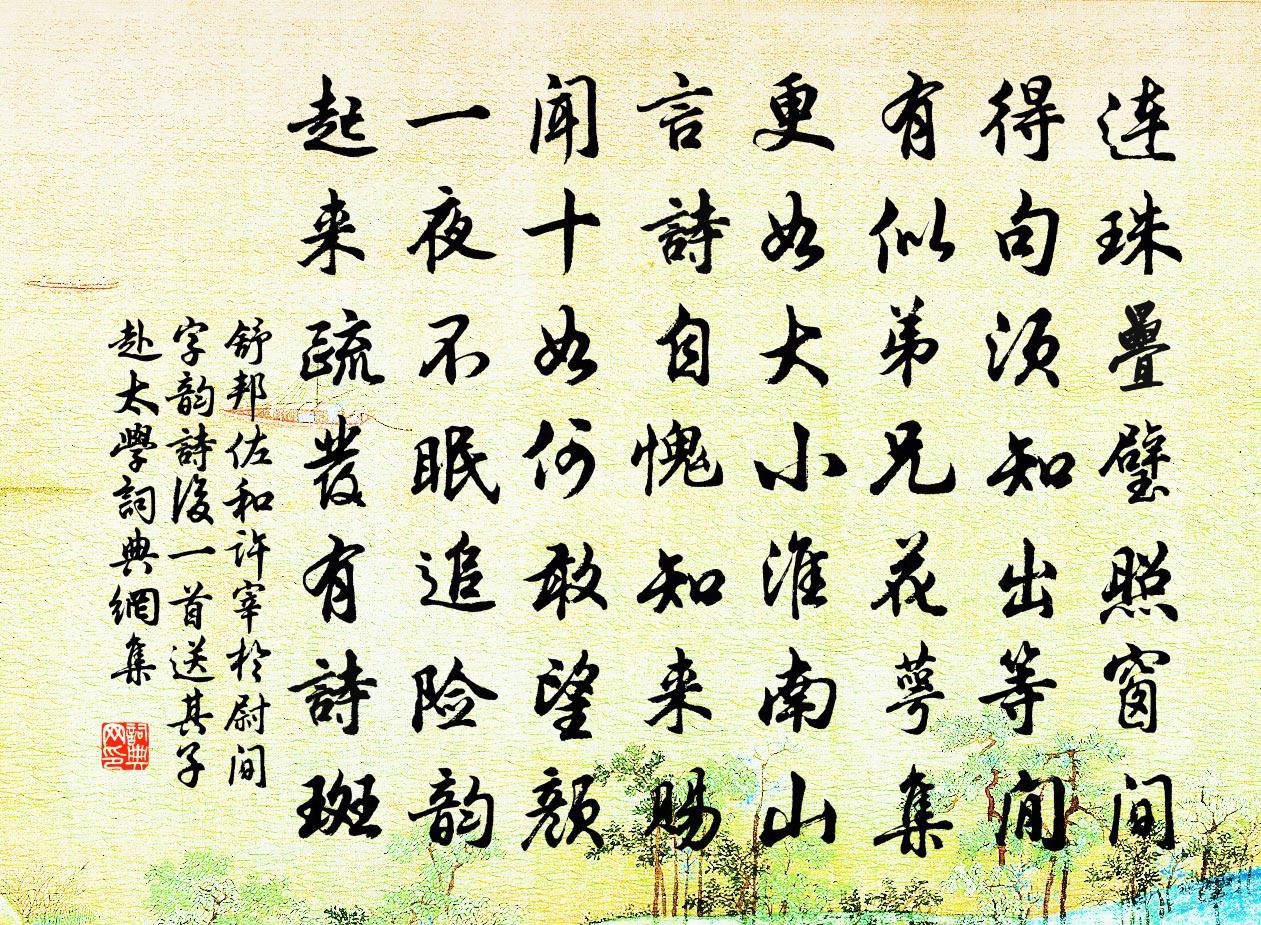 連珠疊璧照窗間
得句須知出等閒
有似弟兄花萼集
更如大小淮南山
言詩自愧知来賜
聞十如何敢望顏
一夜不眠追險韵
起来疏發有詩斑
舒邦佐和許宰於尉間
字韵詩後一首送其子
赴太學詞典網集
詞典网印